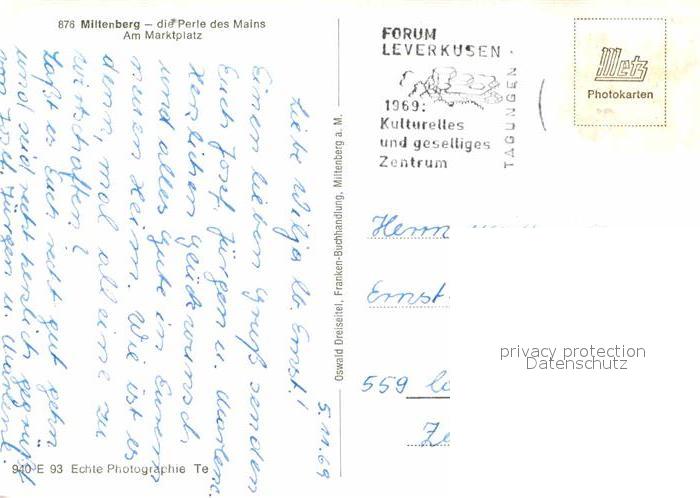 876 Miltenberg – die Perle des Mains
Am Marktplatz
5. 11. 69
Liebe Wilja lb. Ernst!
Einen lieben Gruß senden
Euch Josf. Jürgen u. Marlene.
Herzlichen Glückwunsch
und alles Gute in Eurem
neuen Heim. Wie ist es
denn, mal alleine zu
wirtschaften?
Laßt es Euch recht gut gehn
und seid recht herzlich gegrüßt
von Josf. Jürgen u. Marlene.
940 E 93 Echte Photographie Te
Oswald Dreiseitel, Franken-Buchhandlung, Miltenberg a. M.
FORUM
LEVERKUSEN
1969:
Kulturelles
und geselliges
Zentrum
TAGUNGEN
Metz
Photokarten
Herrn
Ernst
559
privacy protection
Datenschutz